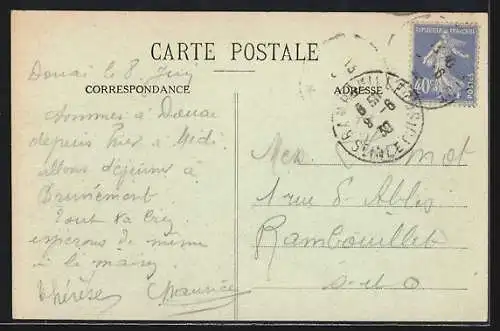 CARTE POSTALE
CORRESPONDANCE
ADRESSE
Douai le 8 Juin
Sommes à Douai
depuis hier à Midi
allons déjeuner à
Brunémont
Tout va bien
espérons de même
à la maison
Thérèse Maurice
Mot
1 rue
Rambouillet
S et O
REPUBLIQUE FRANÇAISE
40c
POSTES